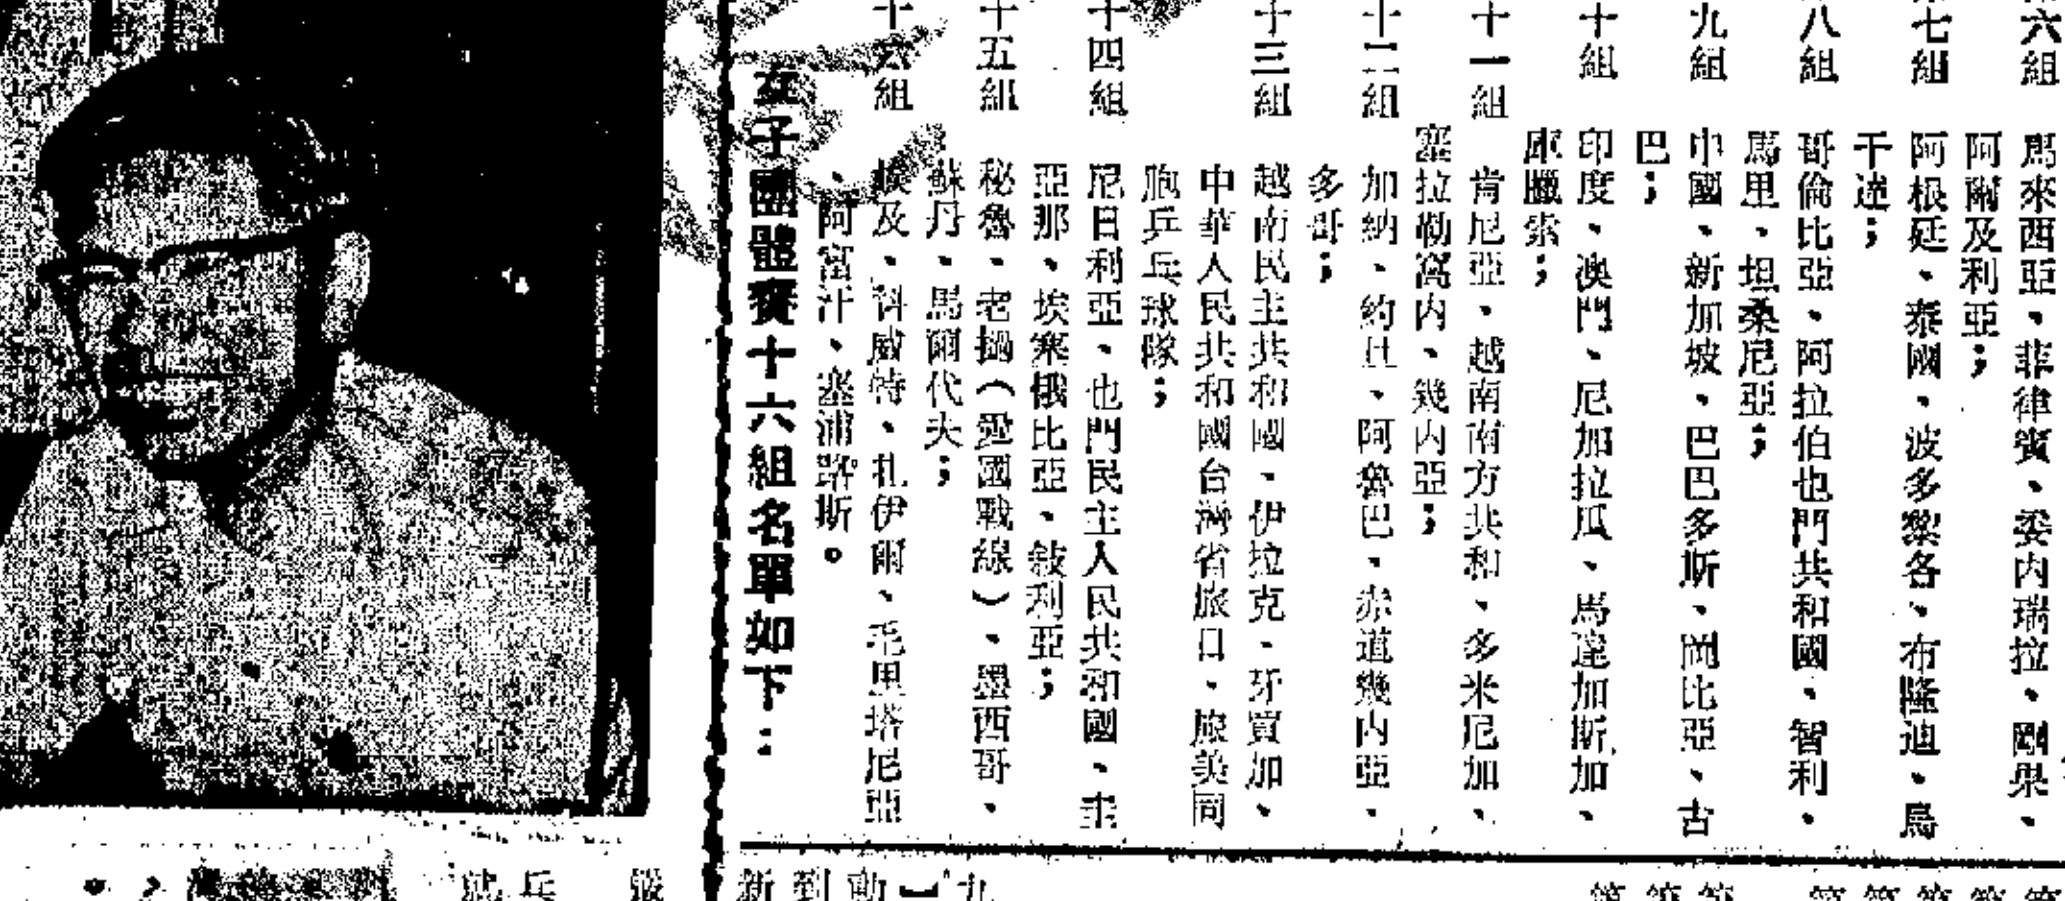 六組 馬來西亞、菲律賓、委內瑞拉、剛果、
阿爾及利亞；
七組 阿根廷、泰國、波多黎各、布隆迪、烏
干達；
八組 哥倫比亞、阿拉伯也門共和國、智利、
馬里、坦桑尼亞；
九組 中國、新加坡、巴巴多斯、岡比亞、古
巴；
十組 印度、澳門、尼加拉瓜、馬達加斯加、
庫臘索；
十一組 肯尼亞、越南南方共和、多米尼加、
塞拉勒窩內、幾內亞；
十二組 加納、約旦、阿魯巴、赤道幾內亞、
多哥；
十三組 越南民主共和國、伊拉克、牙買加、
中華人民共和國台灣省旅日、旅美同
胞乒乓球隊；
十四組 尼日利亞、也門民主人民共和國、圭
亞那、埃塞俄比亞、敍利亞；
十五組 秘魯、老撾（愛國戰線）、墨西哥、
蘇丹、馬爾代夫；
十六組 埃及、科威特、扎伊爾、毛里塔尼亞
、阿富汗、塞浦路斯。
女子團體賽十六組名單如下：